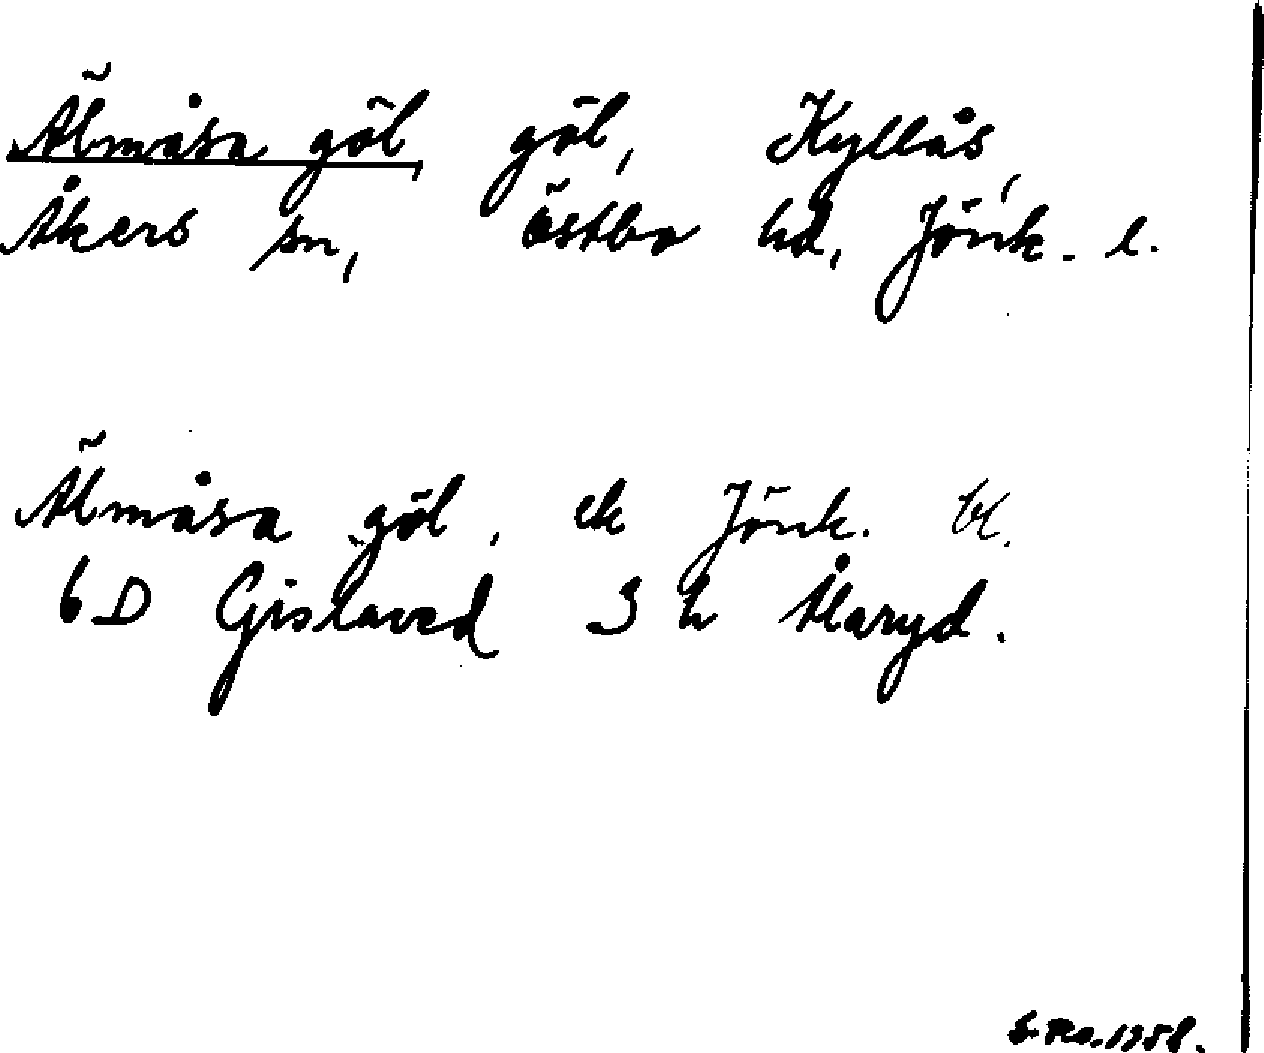 Älmåsa göl, göl, Kyllås,
Åkers sn, Östbo hd, Jönk. l.
Älmåsa göl, ek Jönk. bl.
6D Gislaved 3 h Ålaryd.
1958.